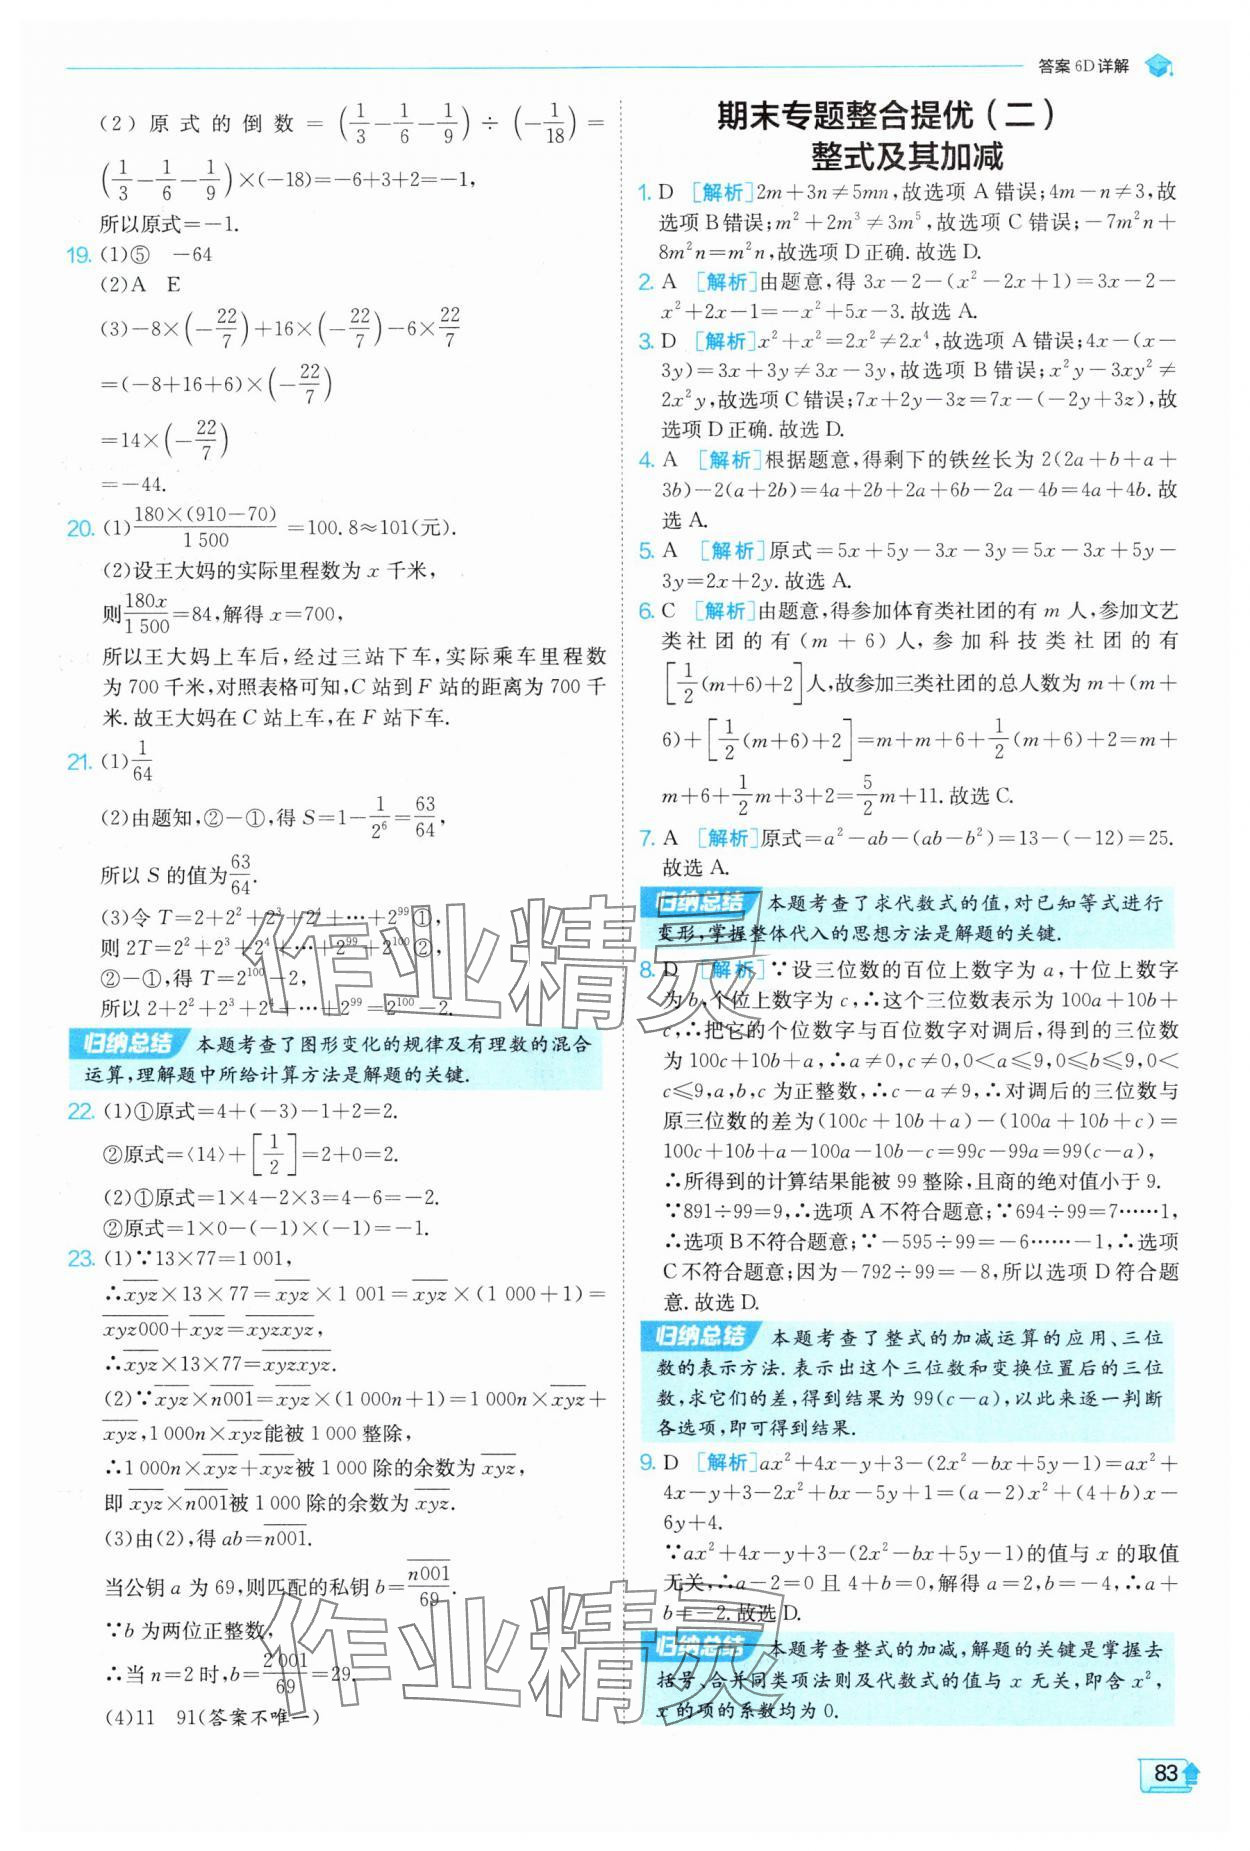 答案 6D 详解
(2)原式的倒数=(1/3-1/6-1/9)÷(-1/18)=
(1/3-1/6-1/9)×(-18)=-6+3+2=-1,
所以原式=-1.
19. (1)⑤ -64
(2)A E
(3)-8×(-22/7)+16×(-22/7)-6×22/7
=(-8+16+6)×(-22/7)
=14×(-22/7)
=-44.
20. (1)180×(910-70)/1 500=100.8≈101(元).
(2)设王大妈的实际里程数为 x 千米,
则180x/1 500=84,解得 x=700,
所以王大妈上车后,经过三站下车,实际乘车里程数
为 700 千米,对照表格可知,C 站到 F 站的距离为 700 千
米.故王大妈在 C 站上车,在 F 站下车.
21. (1)1/64
(2)由题知,②-①,得 S=1-1/2⁶=63/64,
所以 S 的值为63/64.
(3)令 T=2+2²+2³+2⁴+…+2⁹⁹①,
则 2T=2²+2³+2⁴+…+2⁹⁹+2¹⁰⁰②,
②-①,得 T=2¹⁰⁰-2,
所以 2+2²+2³+2⁴+…+2⁹⁹=2¹⁰⁰-2.
归纳总结 本题考查了图形变化的规律及有理数的混合
运算,理解题中所给计算方法是解题的关键.
22. (1)①原式=4+(-3)-1+2=2.
②原式=⟨14⟩+[1/2]=2+0=2.
(2)①原式=1×4-2×3=4-6=-2.
②原式=1×0-(-1)×(-1)=-1.
23. (1)∵13×77=1 001,
∴x̅y̅z̅×13×77=x̅y̅z̅×1 001=x̅y̅z̅×(1 000+1)=
x̅y̅z̅0̅0̅0̅+x̅y̅z̅=x̅y̅z̅x̅y̅z̅,
∴x̅y̅z̅×13×77=x̅y̅z̅x̅y̅z̅.
(2)∵x̅y̅z̅×n̅0̅0̅1̅=x̅y̅z̅×(1 000n+1)=1 000n×x̅y̅z̅+
x̅y̅z̅,1 000n×x̅y̅z̅能被 1 000 整除,
∴1 000n×x̅y̅z̅+x̅y̅z̅被 1 000 除的余数为 x̅y̅z̅,
即 x̅y̅z̅×n̅0̅0̅1̅被 1 000 除的余数为 x̅y̅z̅.
(3)由(2),得 ab=n̅0̅0̅1̅.
当公钥 a 为 69,则匹配的私钥 b=n̅0̅0̅1̅/69.
∵b 为两位正整数,
∴当 n=2 时,b=2 001/69=29.
(4)11 91(答案不唯一)
期末专题整合提优(二)
整式及其加减
1. D [解析]2m+3n≠5mn,故选项 A 错误;4m-n≠3,故
选项 B 错误;m²+2m³≠3m⁵,故选项 C 错误;-7m²n+
8m²n=m²n,故选项 D 正确.故选 D.
2. A [解析]由题意,得 3x-2-(x²-2x+1)=3x-2-
x²+2x-1=-x²+5x-3.故选 A.
3. D [解析]x²+x²=2x²≠2x⁴,故选项 A 错误;4x-(x-
3y)=3x+3y≠3x-3y,故选项 B 错误;x²y-3xy²≠
2x²y,故选项 C 错误;7x+2y-3z=7x-(-2y+3z),故
选项 D 正确.故选 D.
4. A [解析]根据题意,得剩下的铁丝长为 2(2a+b+a+
3b)-2(a+2b)=4a+2b+2a+6b-2a-4b=4a+4b.故
选 A.
5. A [解析]原式=5x+5y-3x-3y=5x-3x+5y-
3y=2x+2y.故选 A.
6. C [解析]由题意,得参加体育类社团的有 m 人,参加文艺
类社团的有(m+6)人,参加科技类社团的有
[1/2(m+6)+2]人,故参加三类社团的总人数为 m+(m+
6)+[1/2(m+6)+2]=m+m+6+1/2(m+6)+2=m+
m+6+1/2m+3+2=5/2m+11.故选 C.
7. A [解析]原式=a²-ab-(ab-b²)=13-(-12)=25.
故选 A.
归纳总结 本题考查了求代数式的值,对已知等式进行
变形,掌握整体代入的思想方法是解题的关键.
8. D [解析]∵设三位数的百位上数字为 a,十位上数字
为 b,个位上数字为 c,∴这个三位数表示为 100a+10b+
c,∴把它的个位数字与百位数字对调后,得到的三位数
为 100c+10b+a,∴a≠0,c≠0,0<a≤9,0≤b≤9,0<
c≤9,a,b,c 为正整数,∴c-a≠9,∴对调后的三位数与
原三位数的差为(100c+10b+a)-(100a+10b+c)=
100c+10b+a-100a-10b-c=99c-99a=99(c-a),
∴所得到的计算结果能被 99 整除,且商的绝对值小于 9.
∵891÷99=9,∴选项 A 不符合题意;∵694÷99=7……1,
∴选项 B 不符合题意;∵-595÷99=-6……-1,∴选项
C 不符合题意;因为-792÷99=-8,所以选项 D 符合题
意.故选 D.
归纳总结 本题考查了整式的加减运算的应用、三位
数的表示方法.表示出这个三位数和变换位置后的三位
数,求它们的差,得到结果为 99(c-a),以此来逐一判断
各选项,即可得到结果.
9. D [解析]ax²+4x-y+3-(2x²-bx+5y-1)=ax²+
4x-y+3-2x²+bx-5y+1=(a-2)x²+(4+b)x-
6y+4.
∵ax²+4x-y+3-(2x²-bx+5y-1)的值与 x 的取值
无关,∴a-2=0 且 4+b=0,解得 a=2,b=-4,∴a+
b=-2.故选 D.
归纳总结 本题考查整式的加减,解题的关键是掌握去
括号、合并同类项法则及代数式的值与 x 无关,即含 x²,
x 的项的系数均为 0.
83
作业精灵
作业精灵